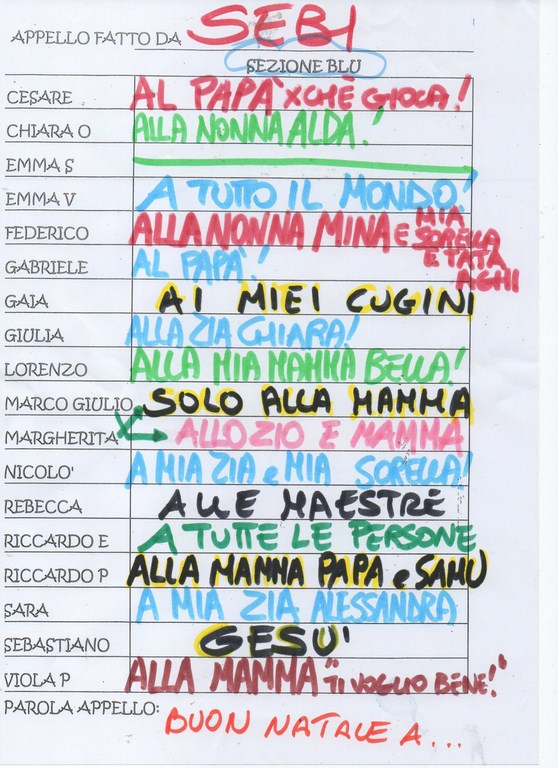 APPELLO FATTO DA SEBI
SEZIONE BLU
CESARE AL PAPA' XCHÈ GIOCA!
CHIARA O ALLA NONNA ALDA!
EMMA S
EMMA V A TUTTO IL MONDO'
FEDERICO ALLA NONNA MINA E MIA SORELLA E TATA AGHI
GABRIELE AL PAPA'!
GAIA AI MIEI CUGINI
GIULIA ALLA ZIA CHIARA!
LORENZO ALLA MIA MAMMA BELLA!
MARCO GIULIO SOLO ALLA MAMMA
MARGHERITA ALLO ZIO E MAMMA
NICOLO' A MIA ZIA e MIA SORELLA!
REBECCA ALLE MAESTRE
RICCARDO E A TUTTE LE PERSONE
RICCARDO P ALLA MAMMA PAPA e SAMU
SARA A MIA ZIA ALESSANDRA
SEBASTIANO GESU'
VIOLA P ALLA MAMMA "TI VOGLIO BENE!"
PAROLA APPELLO: BUON NATALE A...